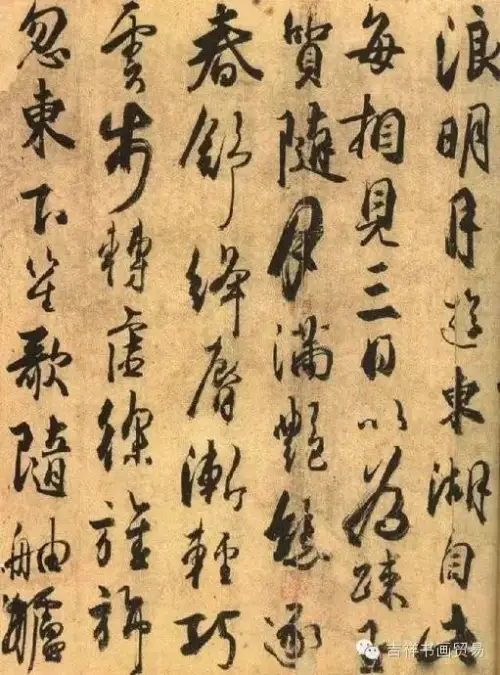 浪明月遊東湖自此
每相見三日以為疎玉
質隨月滿艷態逐
春舒絳脣漸輕巧
雲步轉虛徐旌旆
忽東下笙歌隨舳艫
吉祥书画贸易